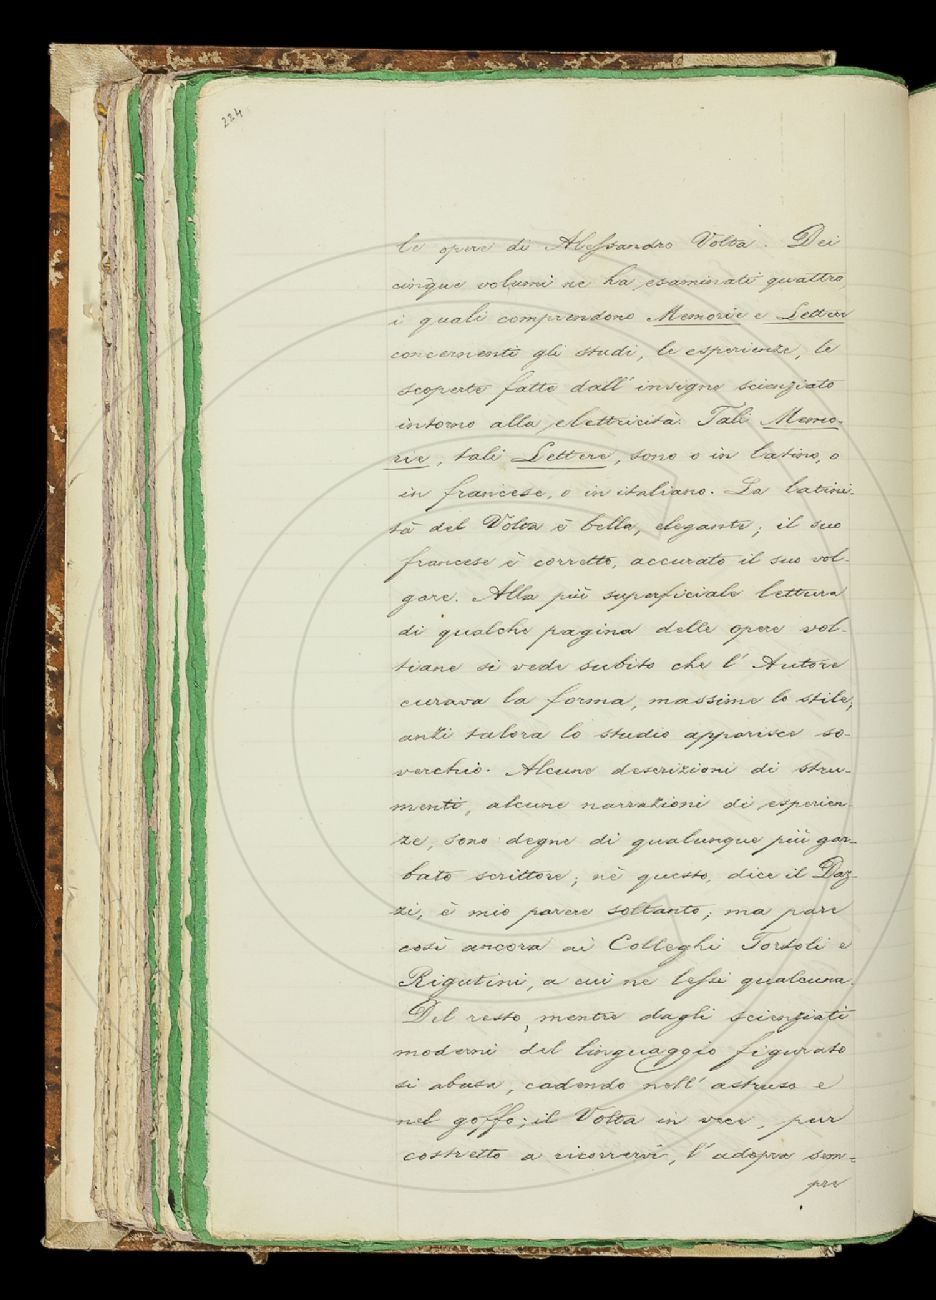 224
le opere di Alessandro Volta. Dei
cinque volumi ne ha esaminati quattro,
i quali comprendono Memorie e Lettere
concernenti gli studi, le esperienze, le
scoperte fatte dall' insigne scienziato
intorno alla elettricità. Tali Memo-
rie, tali Lettere, sono o in latino, o
in francese, o in italiano. La latini-
tà del Volta è bella, elegante; il suo
francese è corretto, accurato il suo vol-
gare. Alla più superficiale lettura
di qualche pagina delle opere vol-
tiane si vede subito che l' Autore
curava la forma, massime lo stile;
anzi talora lo studio apparisce so-
verchio. Alcune descrizioni di stru-
menti, alcune narrazioni di esperien
ze, sono degne di qualunque più gar-
bato scrittore; nè questo, dice il Daz-
zi, è mio parere soltanto; ma pare
così ancora ai Colleghi Tortoli e
Rigutini, a cui ne lessi qualcuna.
Del resto, mentre dagli scienziati
moderni del linguaggio figurato
si abusa, cadendo nell' astruso e
nel goffo; il Volta in vece, pur
costretto a ricorrervi, l' adopra sem-
pre